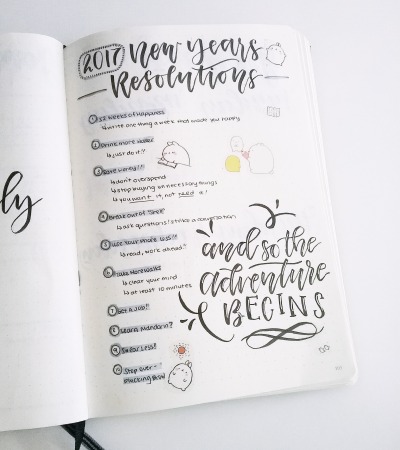 ly
2017 New Years
Resolutions
1 52 weeks of Happiness
↳write one thing a week that made you happy
2 Drink more water
↳just do it!!
3 Save money!!
↳don't overspend
↳stop buying unnecessary things
↳you want it, not need it!
4 Break out of "shell"
↳ask questions! strike a conversation
5 use your phone less!!
↳read, work ahead!!
6 Take more walks
↳clear your mind
↳at least 10 minutes
7 Get a Job!!
8 Learn Mandarin?
9 Swear Less!
10 Stop over-
and so the
adventure
BEGINS